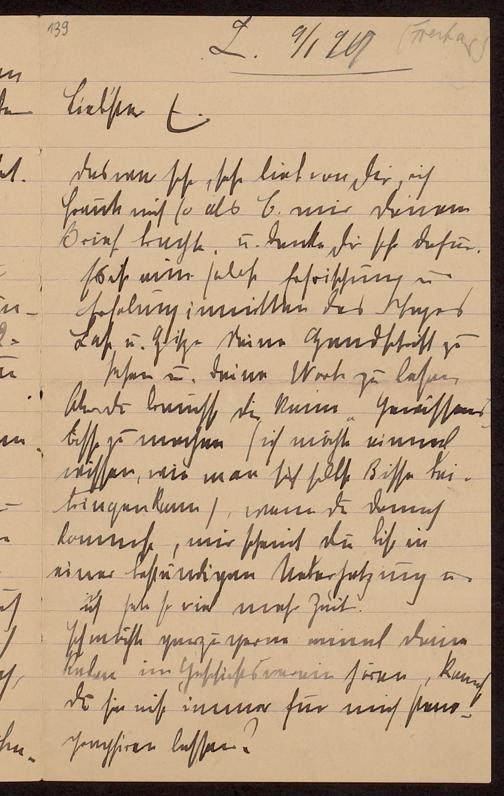 139
L. 9/1 20 (Freitag)
Liebster E.
Das war sehr, sehr lieb von Dir, ich
freute mich so als C. mir Deinen
Brief brachte, u. danke Dir sehr dafür.
Es ist eine solche Erfrischung u
Erholung inmitten des Tages
Last u. Hitze Deine Handschrift zu
sehen u. Deine Worte zu lesen
Aber du brauchst dir keine Gewissens
bisse zu machen (ich möchte einmal
wissen, wie man sich selbst Bisse bei-
bringen kann), wenn du darauf
kommst, mir scheint du bist in
einer beständigen Überhetzung u
ich habe so viel mehr Zeit.
Ich möchte gar zu gerne einmal Deine
Reden im Geschichtsverein hören, kannst
du sie nicht immer für mich steno-
graphiren lassen?